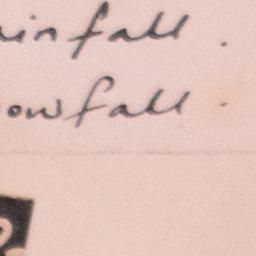 infall.
owfall.